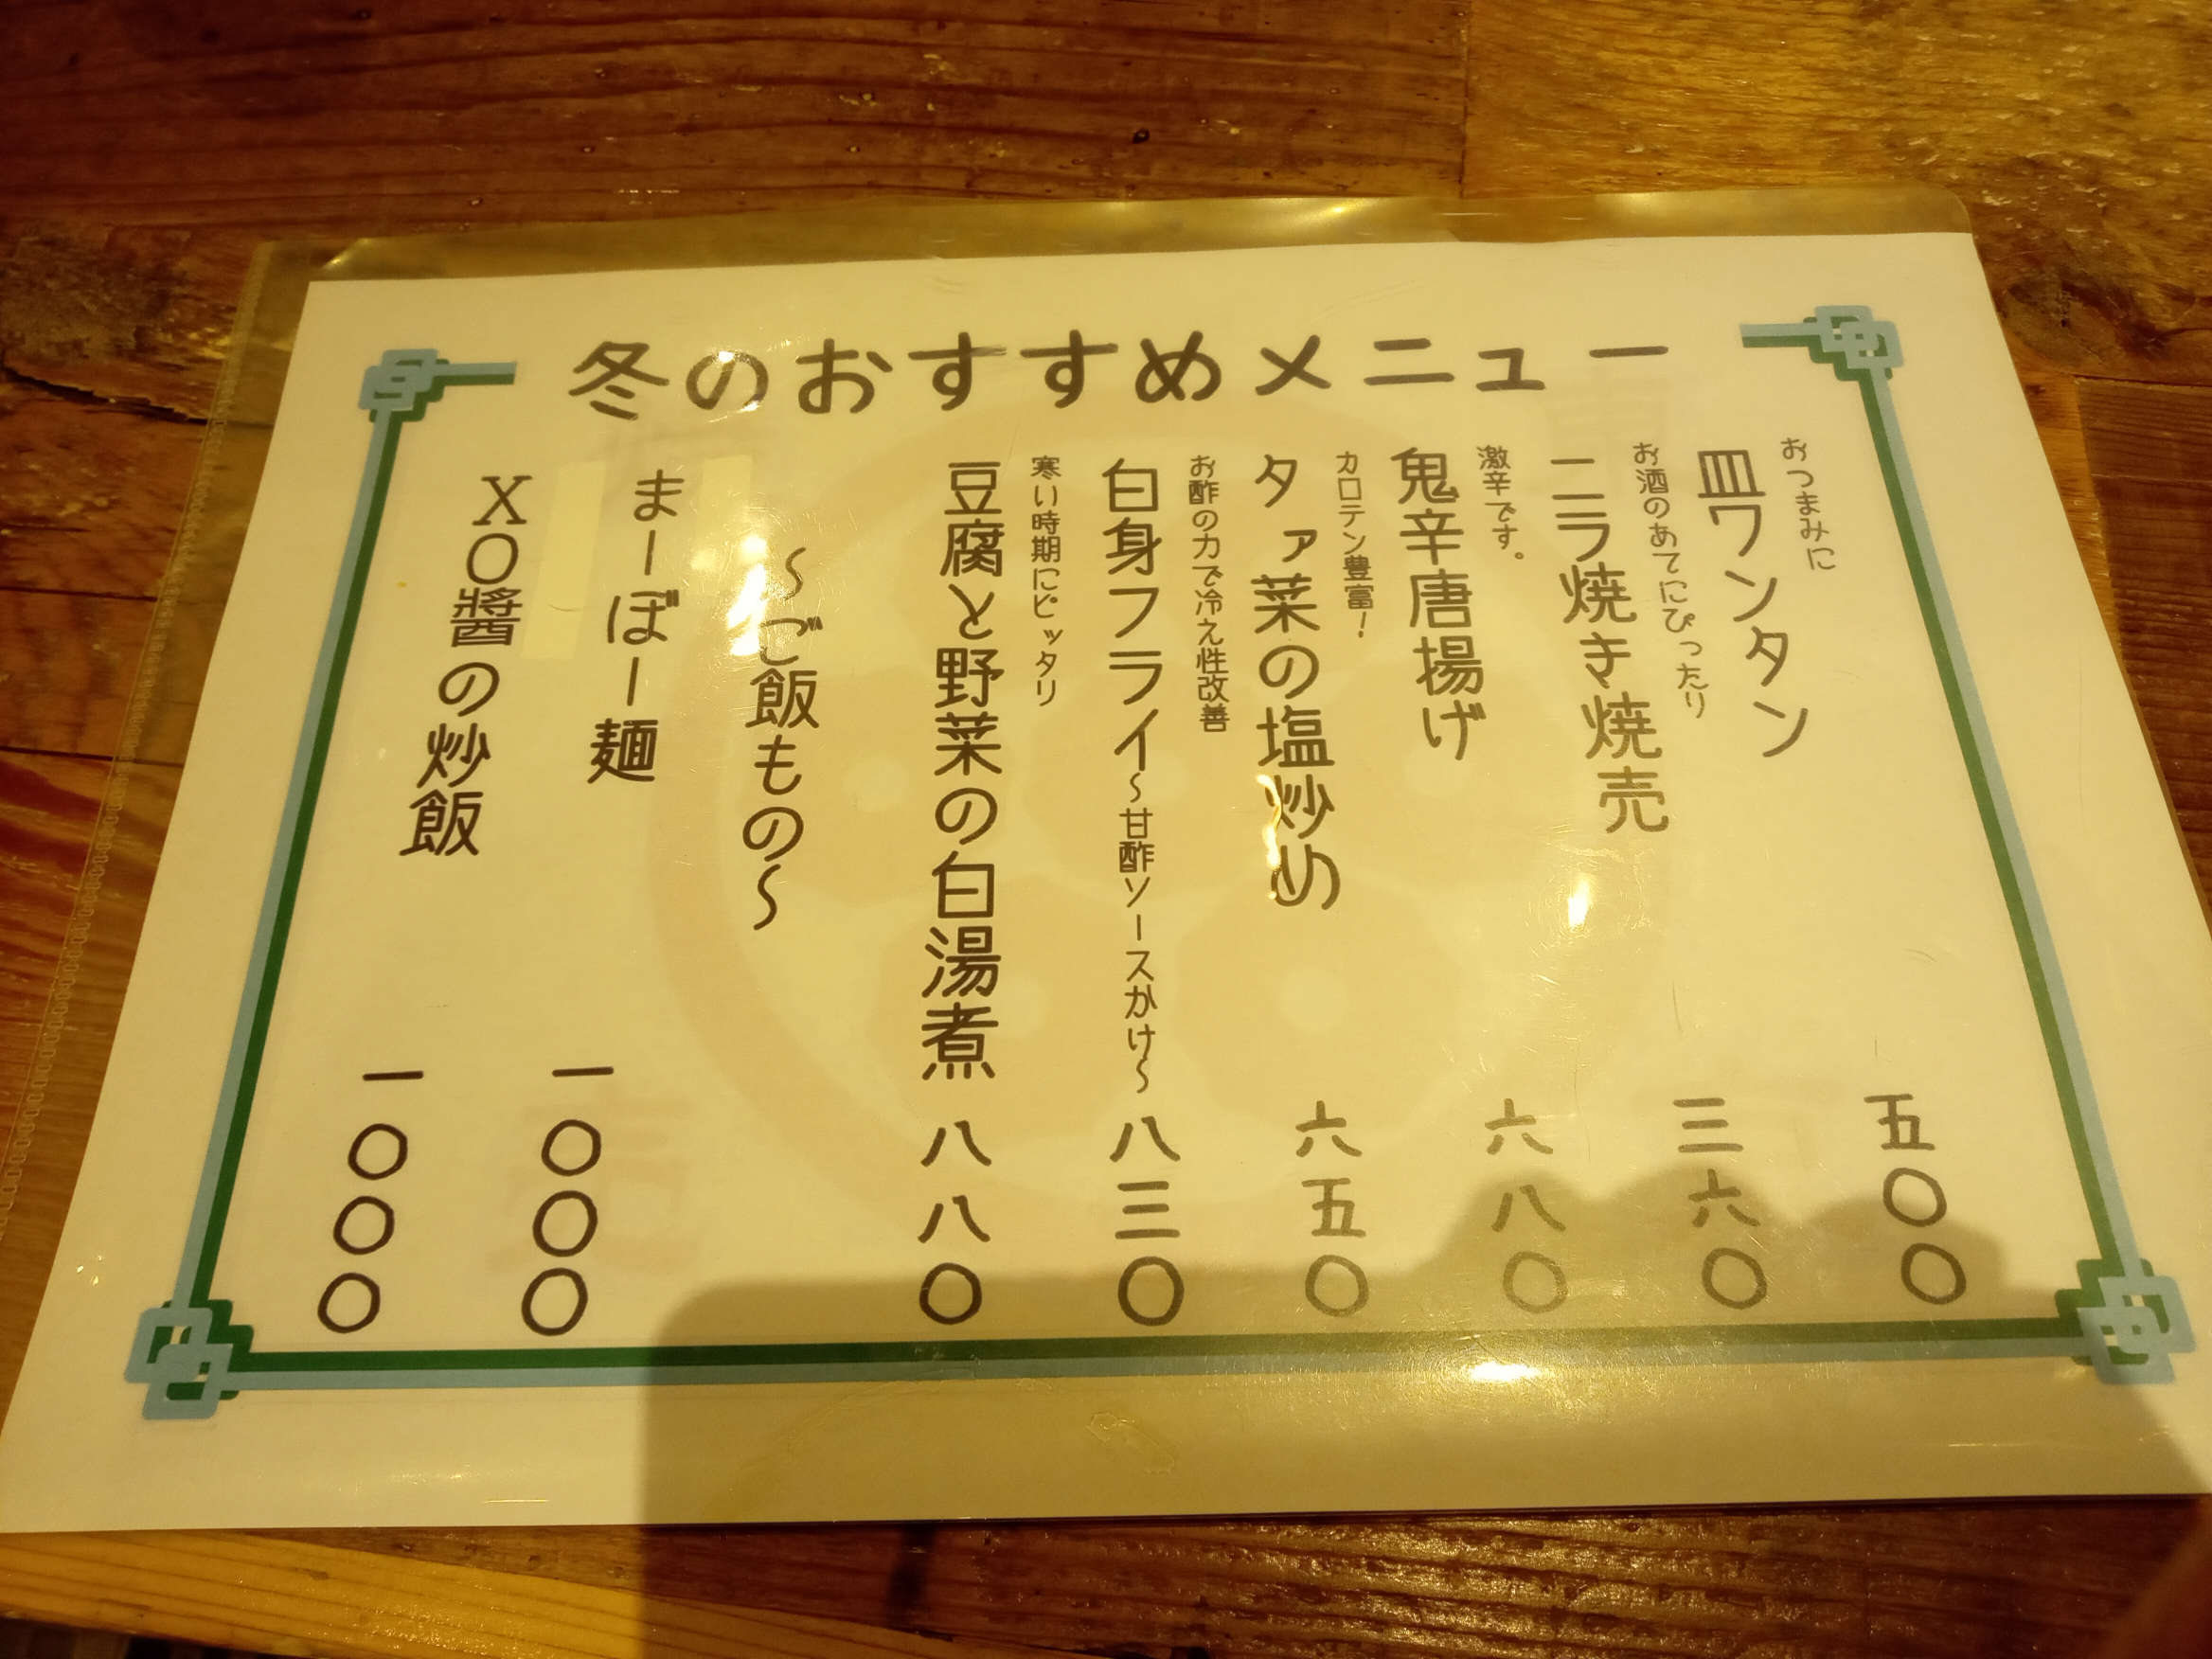 冬のおすすめメニュー
おつまみに
皿ワンタン 五〇〇
お酒のあてにぴったり
ニラ焼き焼売 三六〇
激辛です。
鬼辛唐揚げ 六八〇
カロテン豊富！
タァ菜の塩炒め 六五〇
お酢の力で冷え性改善
白身フライ～甘酢ソースかけ～ 八三〇
寒い時期にピッタリ
豆腐と野菜の白湯煮 八八〇
～ご飯もの～
まーぼー麺 一〇〇〇
XO醬の炒飯 一〇〇〇